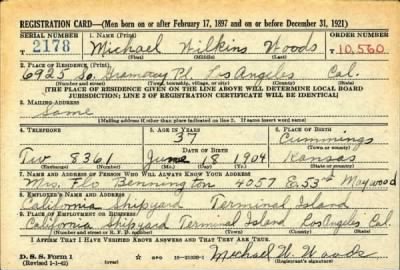 REGISTRATION CARD—(Men born on or after February 17, 1897 and on or before December 31, 1921)
SERIAL NUMBER 1. NAME (Print) ORDER NUMBER
T 2178 Michael Wilkins Woods T10,560
(First) (Middle) (Last)
2. PLACE OF RESIDENCE (Print)
6925 So. Gramercy Pl. Los Angeles Cal.
(Number and street) (Town, township, village, or city) (County) (State)
[THE PLACE OF RESIDENCE GIVEN ON THE LINE ABOVE WILL DETERMINE LOCAL BOARD
JURISDICTION; LINE 2 OF REGISTRATION CERTIFICATE WILL BE IDENTICAL]
3. MAILING ADDRESS
Same
[Mailing address if other than place indicated on line 2. If same insert word same]
4. TELEPHONE 5. AGE IN YEARS 6. PLACE OF BIRTH
37 Cummings
DATE OF BIRTH (Town or county)
Tw 8361 June 18 1904 Kansas
(Mo.) (Day) (Yr.) (State or country)
7. NAME AND ADDRESS OF PERSON WHO WILL ALWAYS KNOW YOUR ADDRESS
Mrs. Flo Bennington 4057 E. 53rd Maywood
8. EMPLOYER'S NAME AND ADDRESS
California Shipyard Terminal Island
9. PLACE OF EMPLOYMENT OR BUSINESS
California Shipyard Terminal Island Los Angeles Cal.
(Number and street or R. F. D. number) (Town) (County) (State)
I AFFIRM THAT I HAVE VERIFIED ABOVE ANSWERS AND THAT THEY ARE TRUE.
D. S. S. Form 1
(Revised 1-1-42) (over) GPO 16—21630-1 Michael W. Woods
(Registrant's signature)